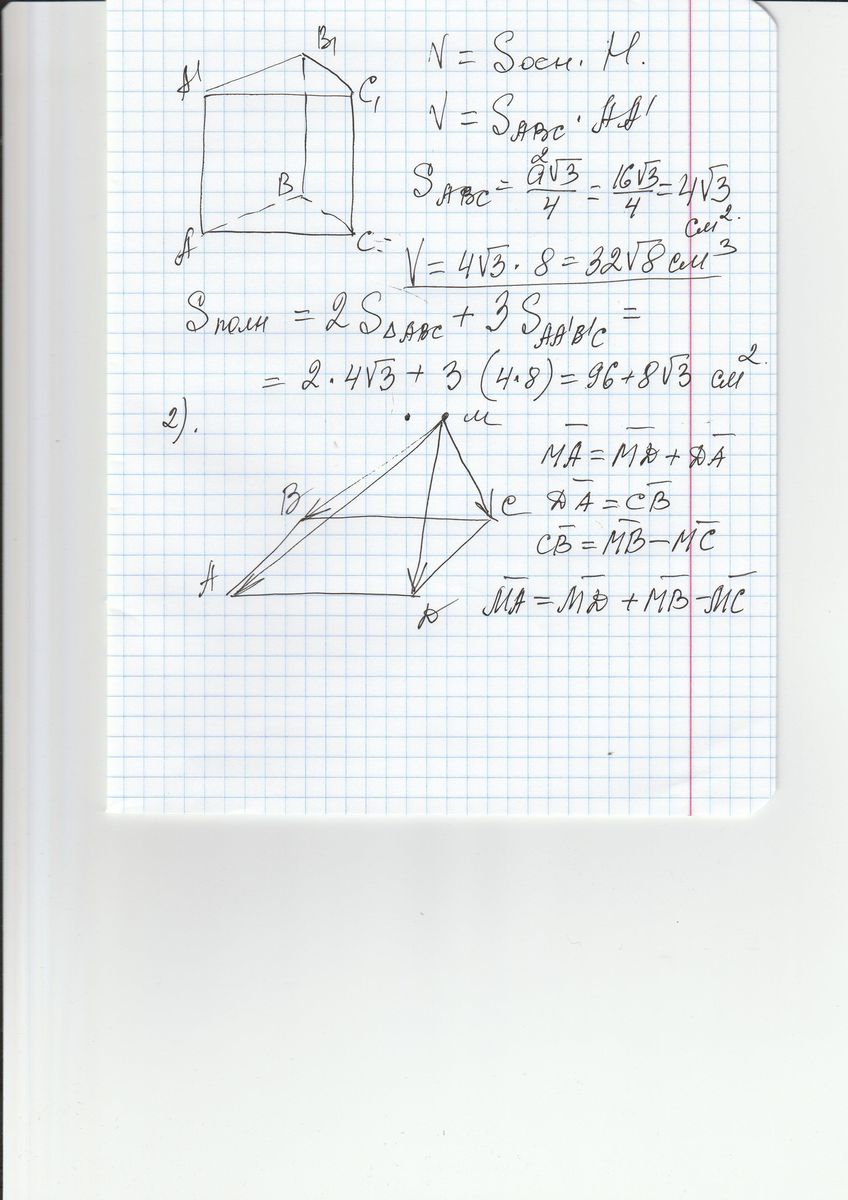 B₁
A' C₁
B
A C=
V = Sосн. H.
V = S_ABC · AA'
S_ABC = a²√3/4 = 16√3/4 = 4√3 см².
V = 4√3 · 8 = 32√8 см³
Sполн = 2 S_ΔABC + 3 S_AA'B'C =
= 2 · 4√3 + 3 (4·8) = 96 + 8√3 см².
2).
M
B C
A D
M̅A̅ = M̅D̅ + D̅A̅
D̅A̅ = C̅B̅
C̅B̅ = M̅B̅ − M̅C̅
M̅A̅ = M̅D̅ + M̅B̅ − M̅C̅